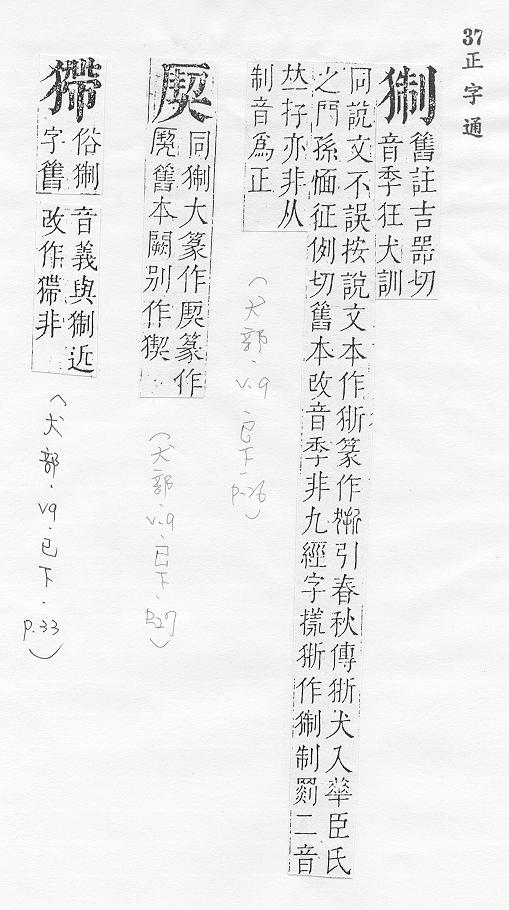 37正字通
猘
舊註吉器切
音季狂犬訓
同說文不誤按說文本作狾篆作引春秋傳狾犬入華臣氏
之門孫愐征例切舊本改音季非九經字㨾狾作猘制罽二音
𠀤存亦非从
制音爲正
(犬部.v.9.已下.p.26)
㓞
同猘大篆作篆作
舊本闕別作猰
(犬部.v.9.已下.p.27)
㺀
俗猘
字舊
音義與猘近
改作㺀非
(犬部.v9.已下.p.33)